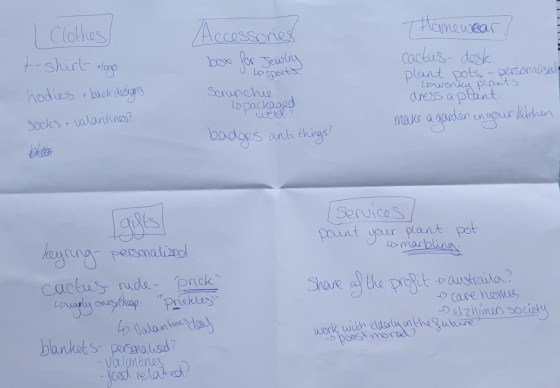 Clothes
t-shirt + logo
hodies + back designs
socks + valantines?
Accessories
box for jewelry
↳ sports
scrunchie
↳ packaged
well?
badges anti things?
Homewear
cactus - desk
plant pots - personalised
↳ wonky plants
dress a plant
make a garden in your kitchen
gifts
keyring - personalized
cactus rude - "prick"
↳ ugly ones/cheap "prickles"
↳ valantines day
blankets - personalised?
- valantines
- food related?
Services
paint your plant pot
↳ marbling
Share of the profit → austraila?
→ care homes
→ alzhimers society
work with elderly in the future?
→ boost morale?